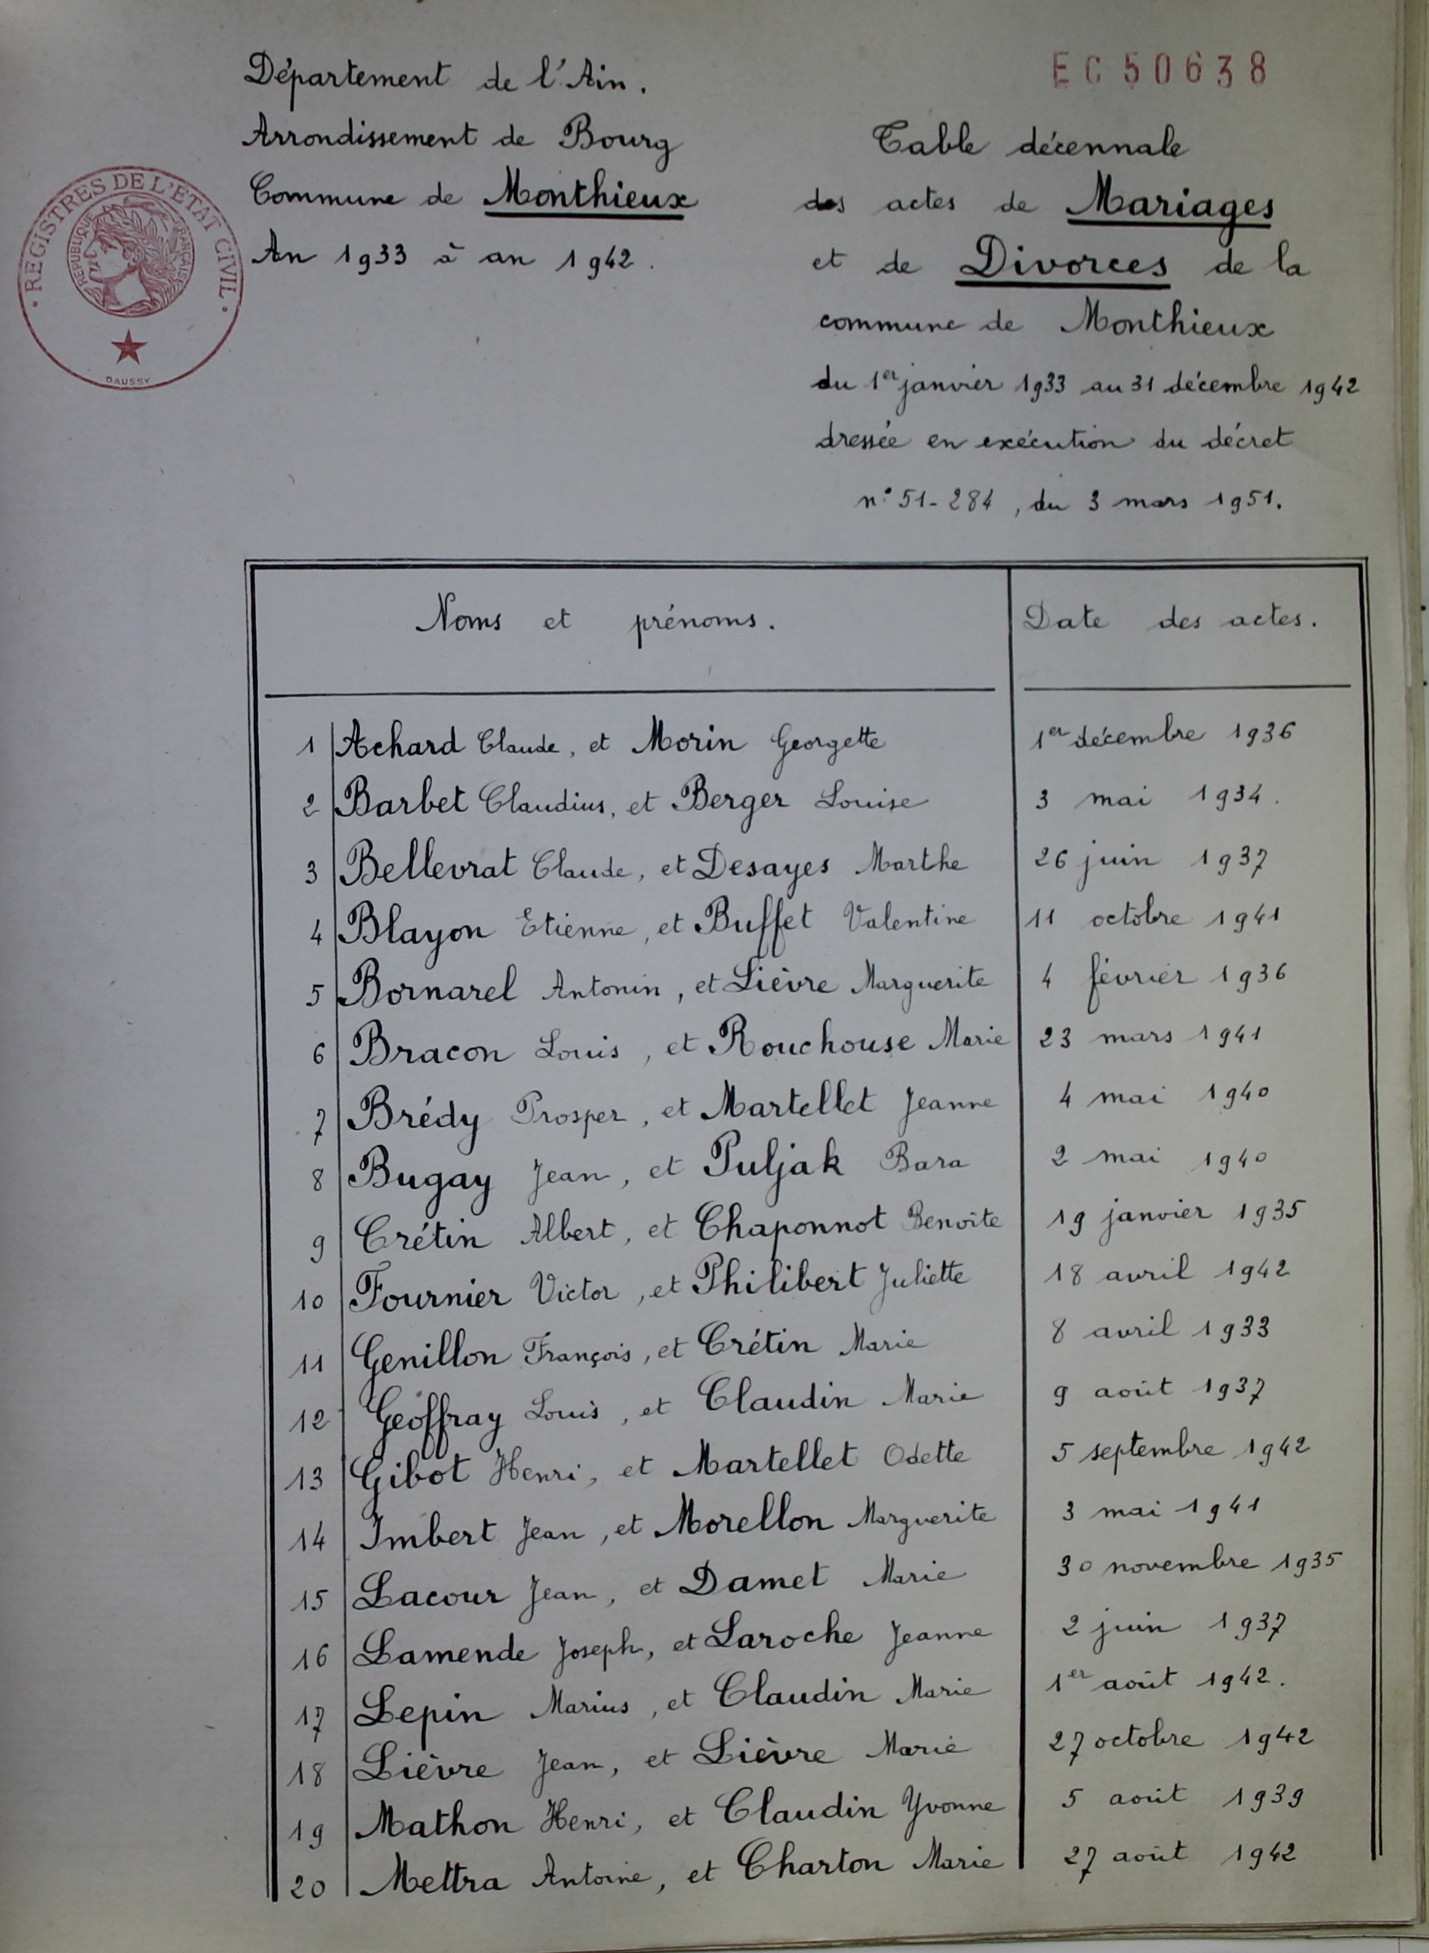 EC50638
Département de l'Ain.
Arrondissement de Bourg
Commune de Monthieux
An 1933 à an 1942.
REGISTRES DE L'ETAT CIVIL
REPUBLIQUE FRANÇAISE
DAUSSY
Table décennale
des actes de Mariages
et de Divorces de la
commune de Monthieux
du 1er janvier 1933 au 31 décembre 1942
dressée en exécution du décret
n° 51-284, du 3 mars 1951.
Noms et prénoms. Date des actes.
1 Achard Claude, et Morin Georgette 1er décembre 1936
2 Barbet Claudius, et Berger Louise 3 mai 1934.
3 Bellevrat Claude, et Desayes Marthe 26 juin 1937
4 Blayon Etienne, et Buffet Valentine 11 octobre 1941
5 Bornarel Antonin, et Lièvre Marguerite 4 février 1936
6 Bracon Louis, et Rouchouse Marie 23 mars 1941
7 Brédy Prosper, et Martellet Jeanne 4 mai 1940
8 Bugay Jean, et Puljak Bara 2 mai 1940
9 Crétin Albert, et Chaponnot Benoîte 19 janvier 1935
10 Fournier Victor, et Philibert Juliette 18 avril 1942
11 Genillon François, et Crétin Marie 8 avril 1933
12 Geoffray Louis, et Claudin Marie 9 août 1937
13 Gibot Henri, et Martellet Odette 5 septembre 1942
14 Imbert Jean, et Morellon Marguerite 3 mai 1941
15 Lacour Jean, et Damet Marie 30 novembre 1935
16 Lamende Joseph, et Laroche Jeanne 2 juin 1937
17 Lepin Marius, et Claudin Marie 1er août 1942.
18 Lièvre Jean, et Lièvre Marie 27 octobre 1942
19 Mathon Henri, et Claudin Yvonne 5 août 1939
20 Mettra Antoine, et Charton Marie 27 août 1942